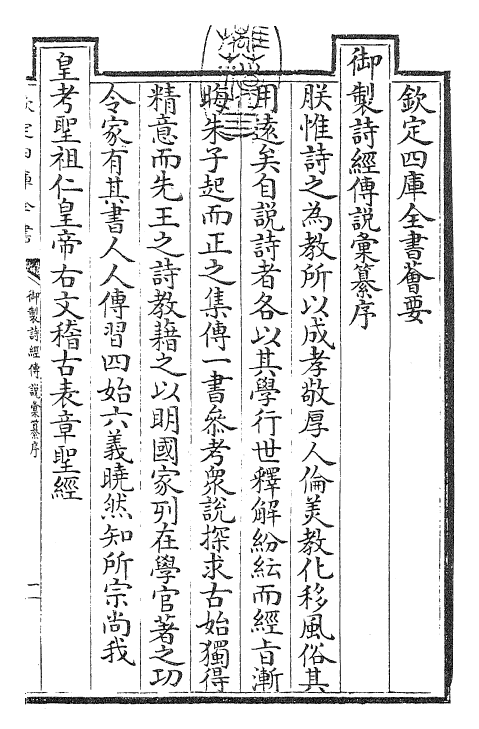 欽定四庫全書薈要
御製詩經傳說彙纂序
朕惟詩之為教所以成孝敬厚人倫美教化移風俗其
用遠矣自説詩者各以其學行世釋解紛紜而經㫖漸
晦朱子起而正之集傳一書叅考衆說探求古始獨得
精意而先王之詩教藉之以明國家列在學官著之功
令家有其書人人傳習四始六義曉然知所宗尚我
皇考聖祖仁皇帝右文稽古表章聖經
欽定四庫全書
御製詩經傳說彙纂序
一